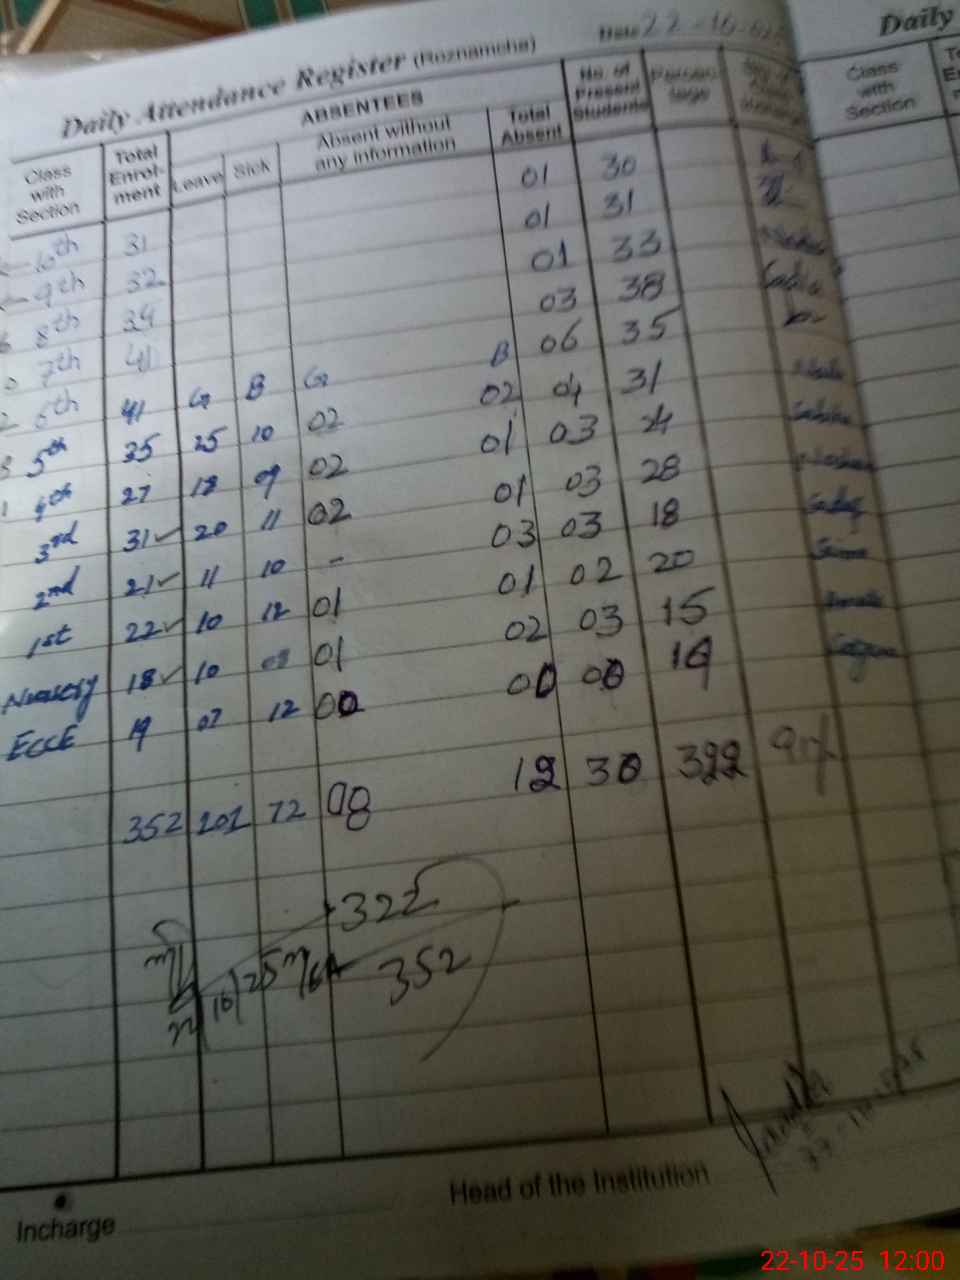 Daily Attendance Register (Roznamcha) Date 22-10-025
Daily
Class with Section Total Enrol-ment ABSENTEES Leave Sick Absent without any information Total Absent No. of Present Students
Class with Section
10th 31 01 30
9th 32 01 31
8th 34 01 33
7th 41 03 38
6th 41 G B G B 06 35
5th 35 25 10 02 02 04 31
4th 27 18 09 02 01 03 24
3rd 31 20 11 02 01 03 28
2nd 21 11 10 - 03 03 18
1st 22 10 12 01 01 02 20
Nursery 18 10 08 01 02 03 15
ECCE 19 07 12 00 00 00 19
352 101 72 08 12 30 322 91%
322
352
Head of the Institution
Incharge
22-10-25 12:00